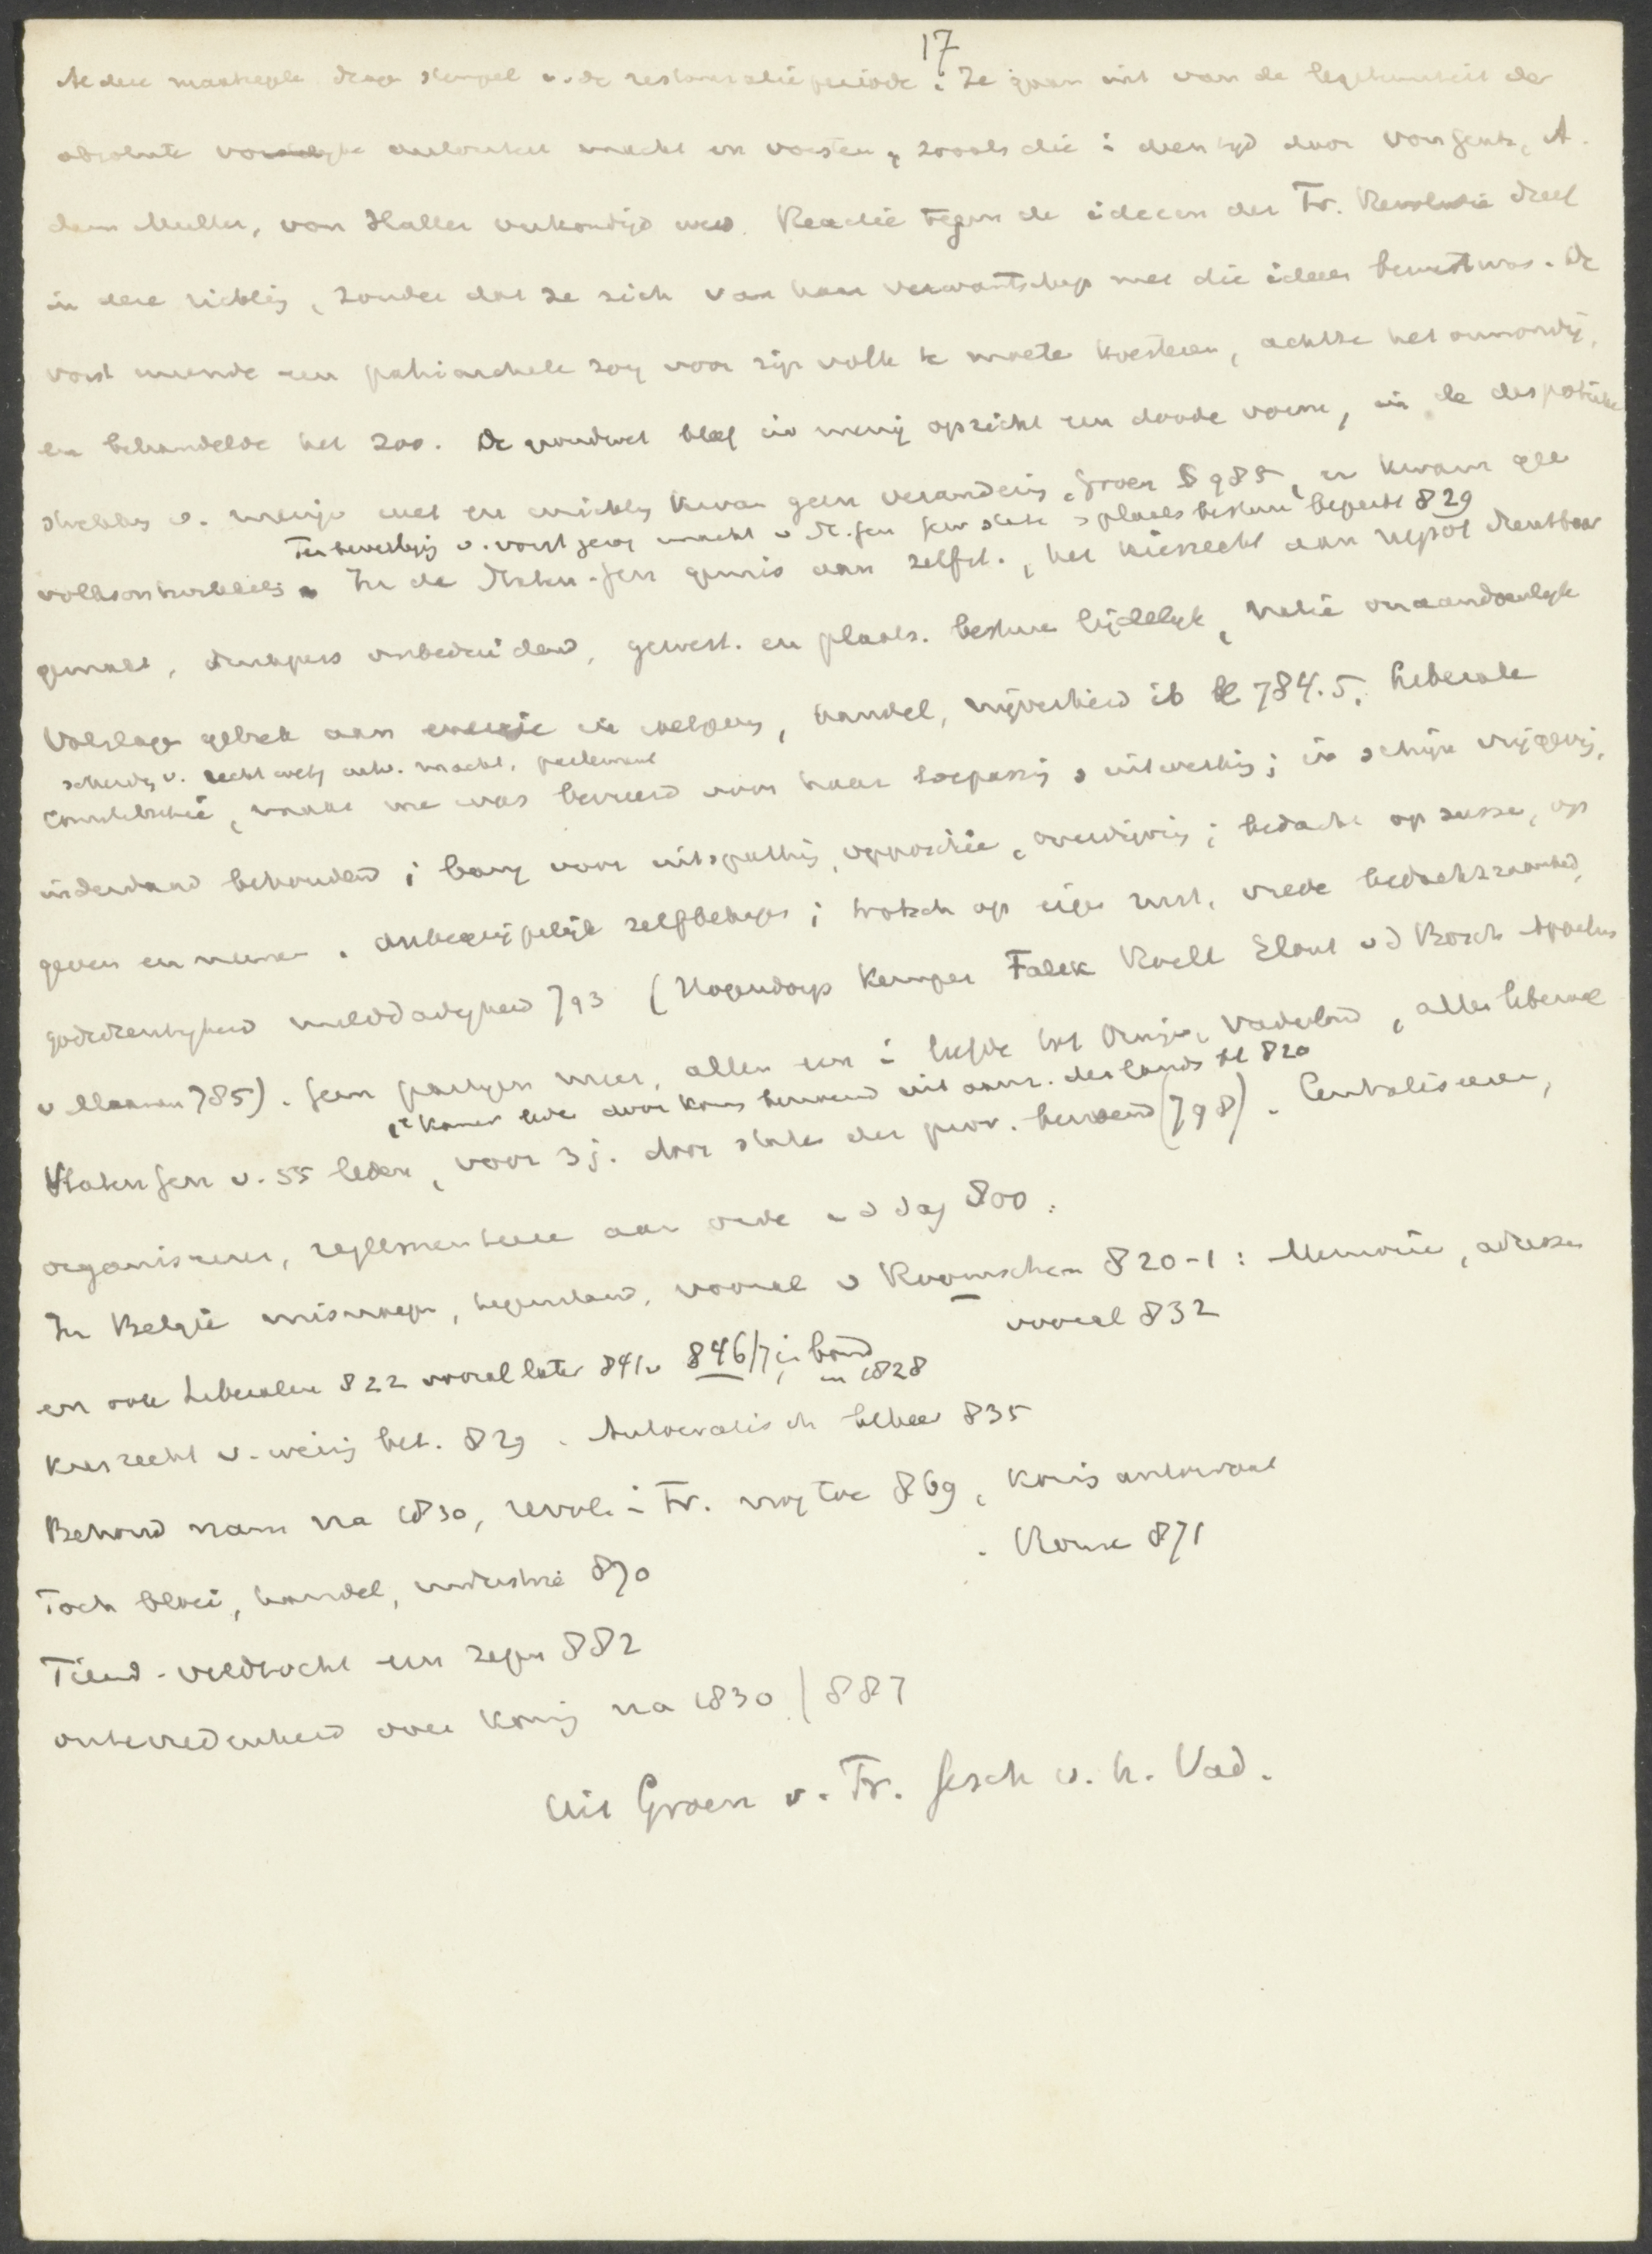 17
Al deze maatregelen drage stempel v. de restauratieperiode. Ze gaan uit van de legitimiteit der
absolute vorstelyke autoritei macht en vorsten, zooals die i dien tyd door von Gentz, A.
dam Muller, von Haller verkondigd werd. Reactie tegen de ideeen der Fr. Revolutie dreef
in deze richting, zonder dat ze zich van haar verwantschap met die ideeen bewust was. De
vorst meende een patriarchale zorg voor zijn volk te moeten koesteren, achtte het onmondig,
en behandelde het zoo. De grondwet bleef in menig opzicht een doode vorm, in de despotieke
strekking v. menige wet en inrichting kwam geen verandering. Groen § 985, er kwam geen
Ter bevestiging v. vorst. gezag macht v St. Gen en State & plaats. bestuur beperkt 829
volksontwikkeling. In de Staten-Gen gemis aan zelfst., het kiesrecht aan nepot dienstbaar
gemaakt, drukpers onbeduidend, gewest. en plaats. bestuur lijdelyk, natie onaandoenlyk
Volslagen gebrek aan energie in wetgeving, handel, nijverheid ib bl 784.5. Liberale
scheiding v. recht wetg uitv. macht, parlement
Constitutie, maar me was bevreesd voor haar toepassing & uitwerking; in schijn vrijgevig,
inderdaad behoudend; bang voor uitspatting, oppositie, overdrijving; bedacht op sussen, op
geven en nemen. Onbegrijpelijk zelfbehagen; trotsch op eigen rust, vrede bedachtzaamheid,
godsdienstigheid milddadigheid 793 (Hogendorp Kemper Falck Roell Elout v d Bosch Appelius
v Maanen 785). Geen partyen meer, allen een i liefde tot Oranje, Vaderland, alles liberaal
1e Kamer leden door Koning benoemd uit aanz. des lands bl 820
Staten Gen v. 55 leden, voor 3 j. door state der prov. benoemd (798). Centraliseeren,
organiseeren, reglementeeren aan orde v d dag 800.
In België misnoegen, tegenstand, vooral v Roomschen 820-1: Memorie, adressen
vooral 832
en ook Liberalen 822 vooral later 841v 846/7; in bond
in 1828
Kiesrecht v. weinig bet. 829. Autocratisch beheer 835
Behoud nam na 1830, revol. i Fr. nog toe 869, Koning antwoord
. Rouse 871
Toch bloei, handel, industrie 870
Tiend. veldtocht een zegen 882
ontevredenheid over Koning na 1830 / 887
Uit Groen v. Pr. Gesch v. h. Vad.